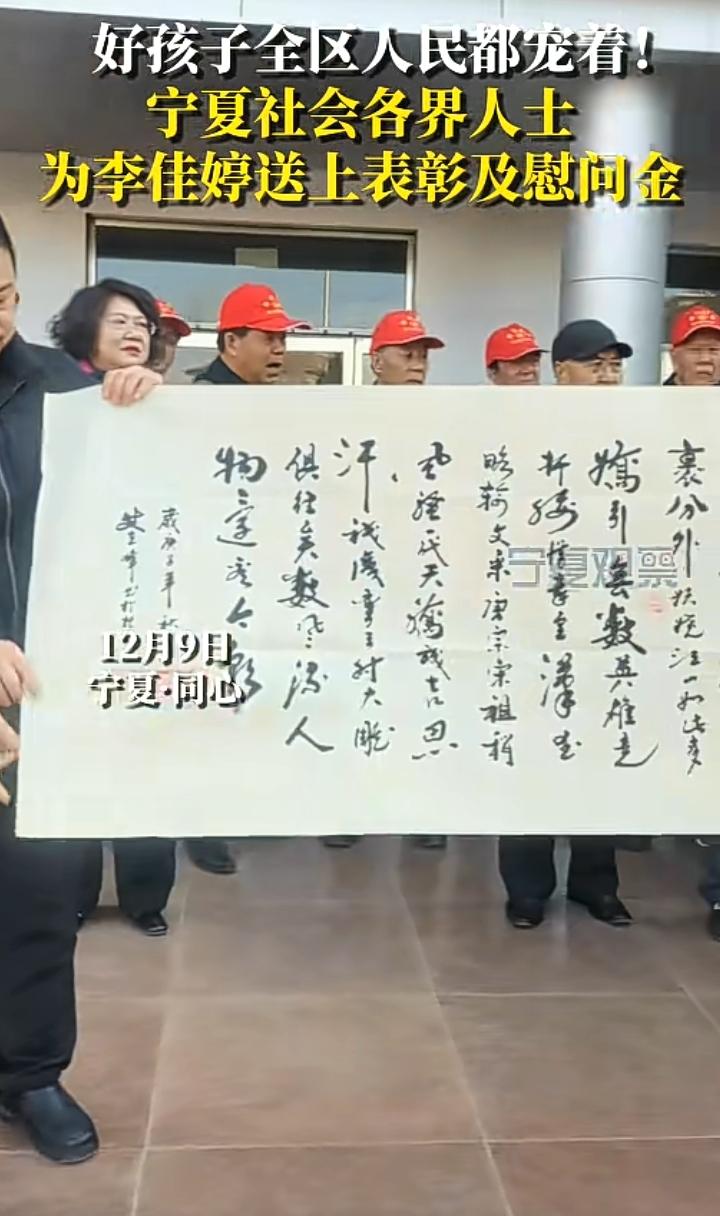 好孩子全区人民都宠着！
宁夏社会各界人士
为李佳婷送上表彰及慰问金
裹分外妖娆江山如此多
嬌引無數英雄竞
折腰惜秦皇漢武
略输文采唐宗宋祖稍
风骚一代天驕成吉思
汗識彎弓射大雕
俱往矣數风流人
物还看今朝
歲庚子年秋
宁夏观察
12月9日
宁夏·同心